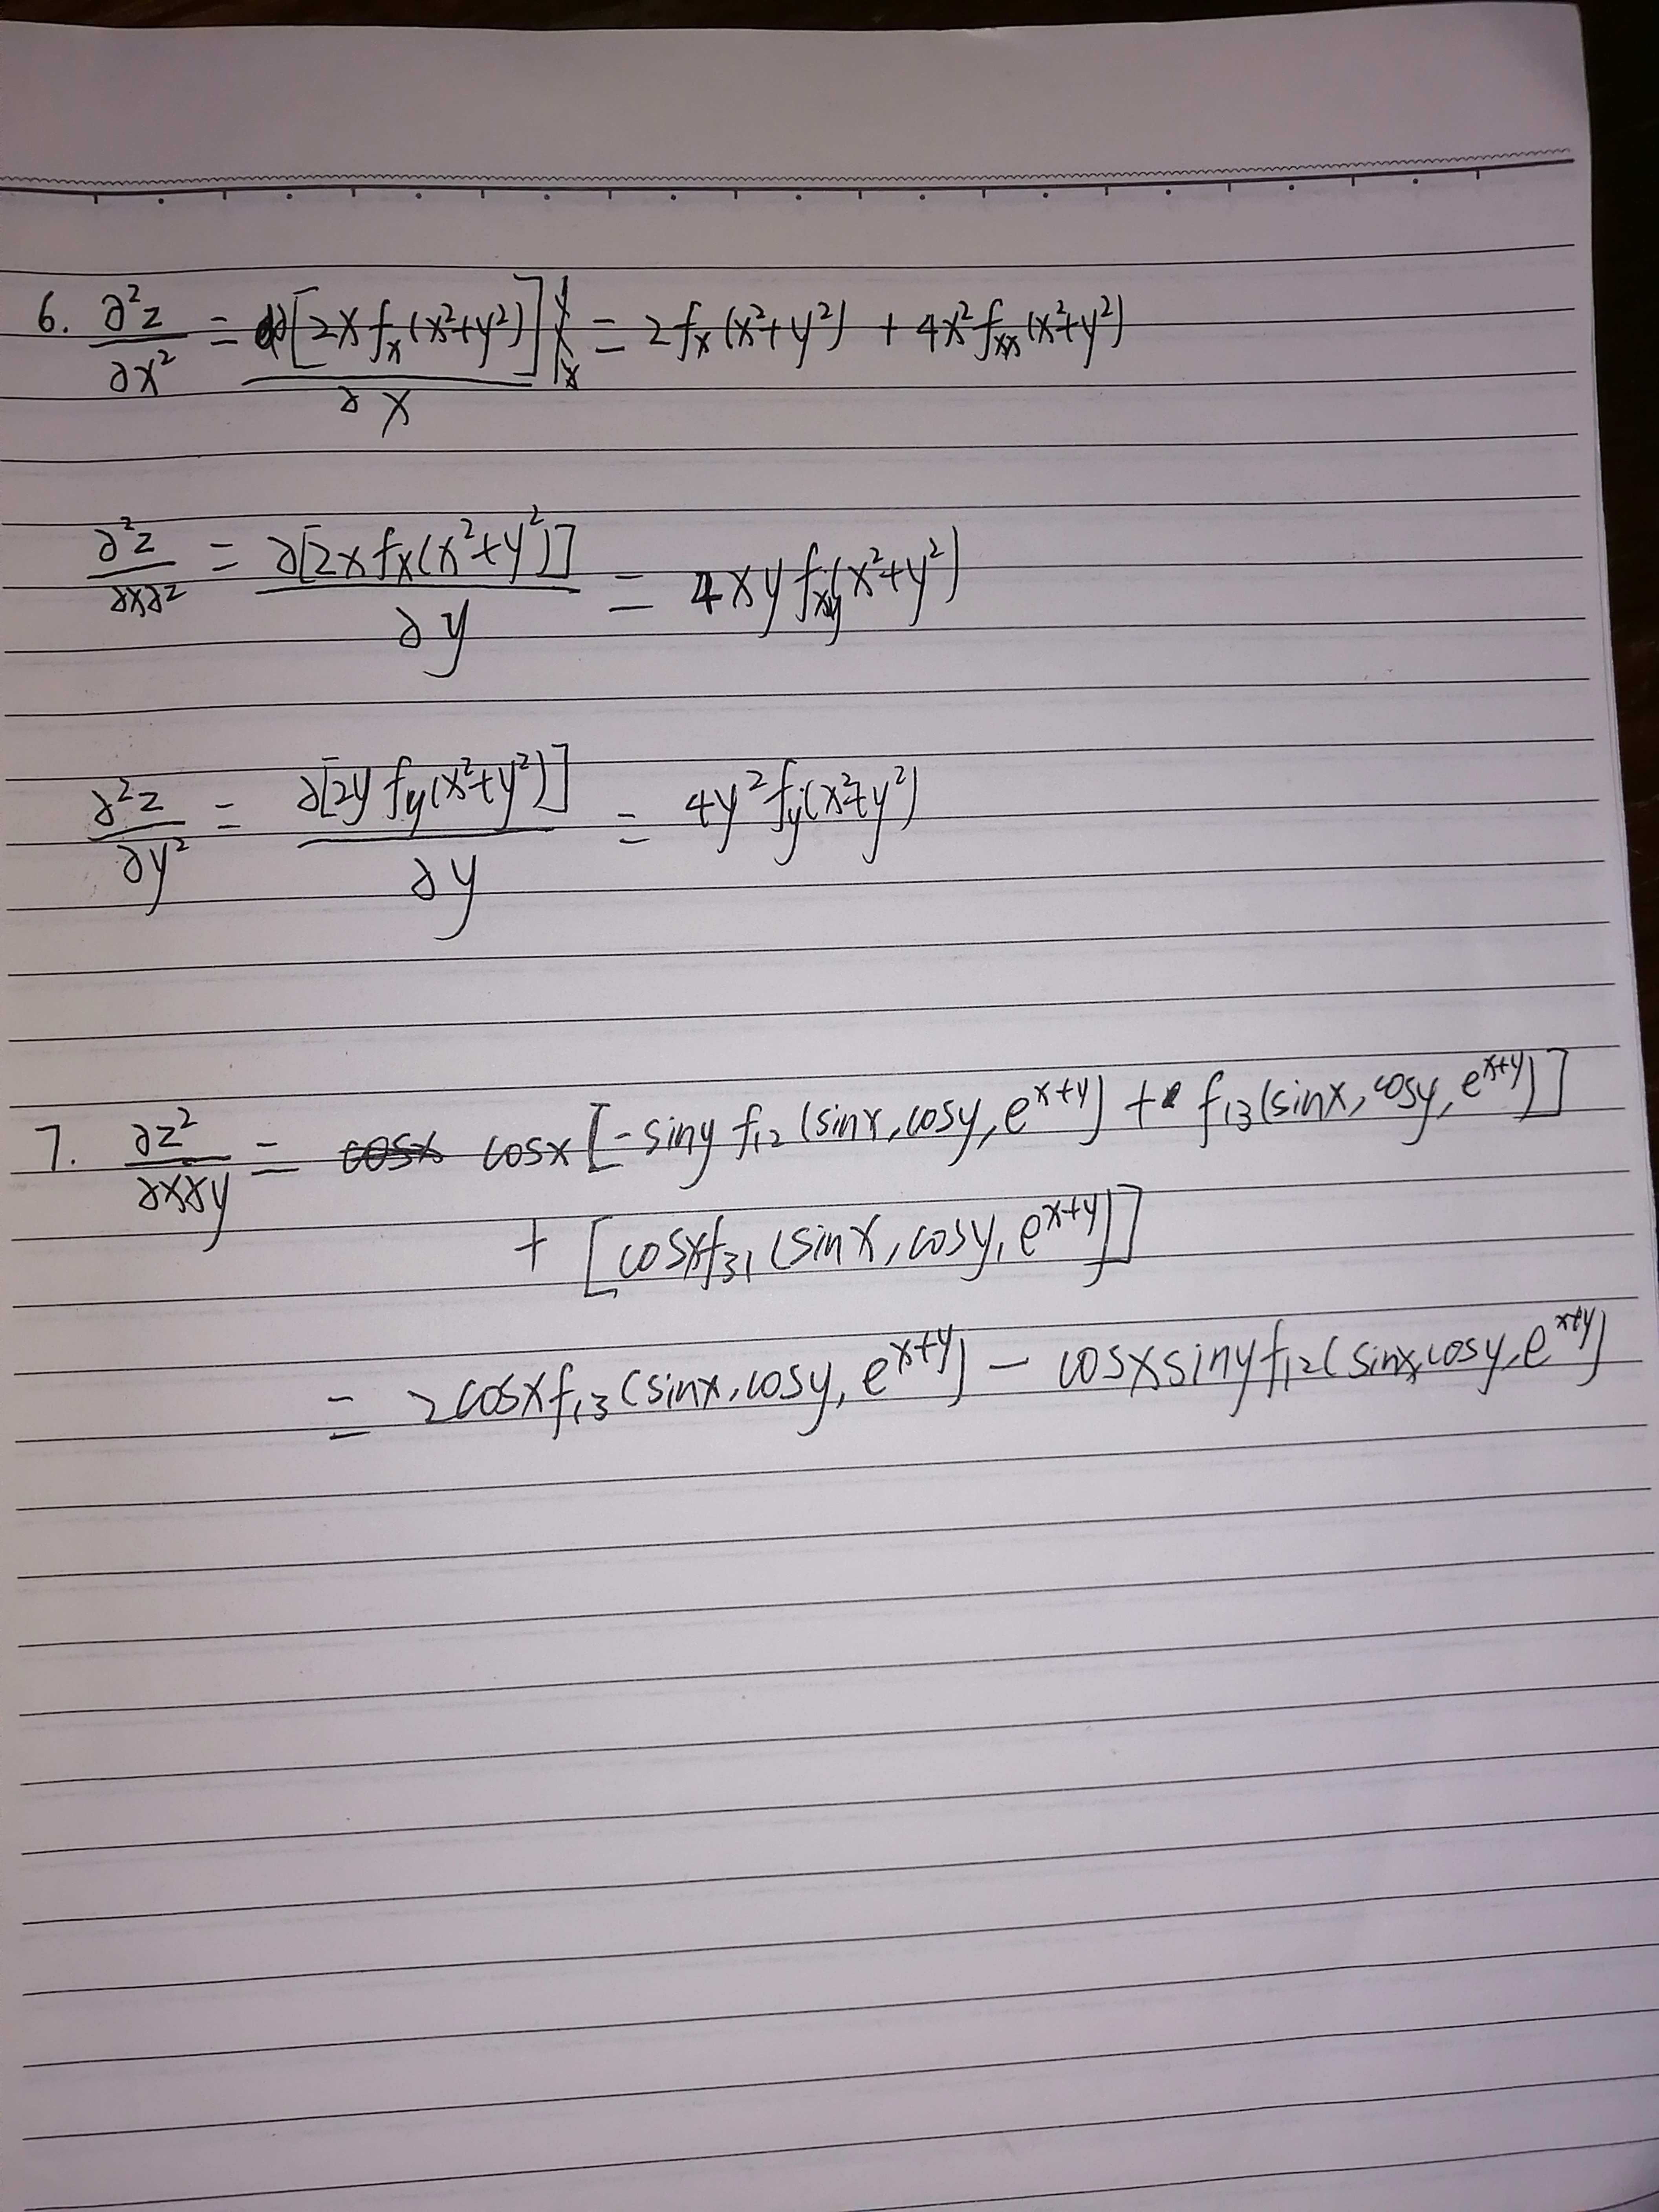 6. ∂²z/∂x² = ∂[2x fₓ(x²+y²)]/∂x = 2fₓ(x²+y²) + 4x²fₓₓ(x²+y²)
∂²z/∂x∂z = ∂[2x fₓ(x²+y²)]/∂y = 4xy f_xy(x²+y²)
∂²z/∂y² = ∂[2y f_y(x²+y²)]/∂y = 4y² f_y(x²+y²)
7. ∂z²/∂x∂y = cosx [-siny f₁₂(sinx, cosy, e^{x+y}) + f₁₃(sinx, cosy, e^{x+y})]
+ [cosxf₃₁(sinx, cosy, e^{x+y})]
= 2cosxf₁₃(sinx, cosy, e^{x+y}) - cosxsinyf₁₂(sinx, cosy, e^{x+y})